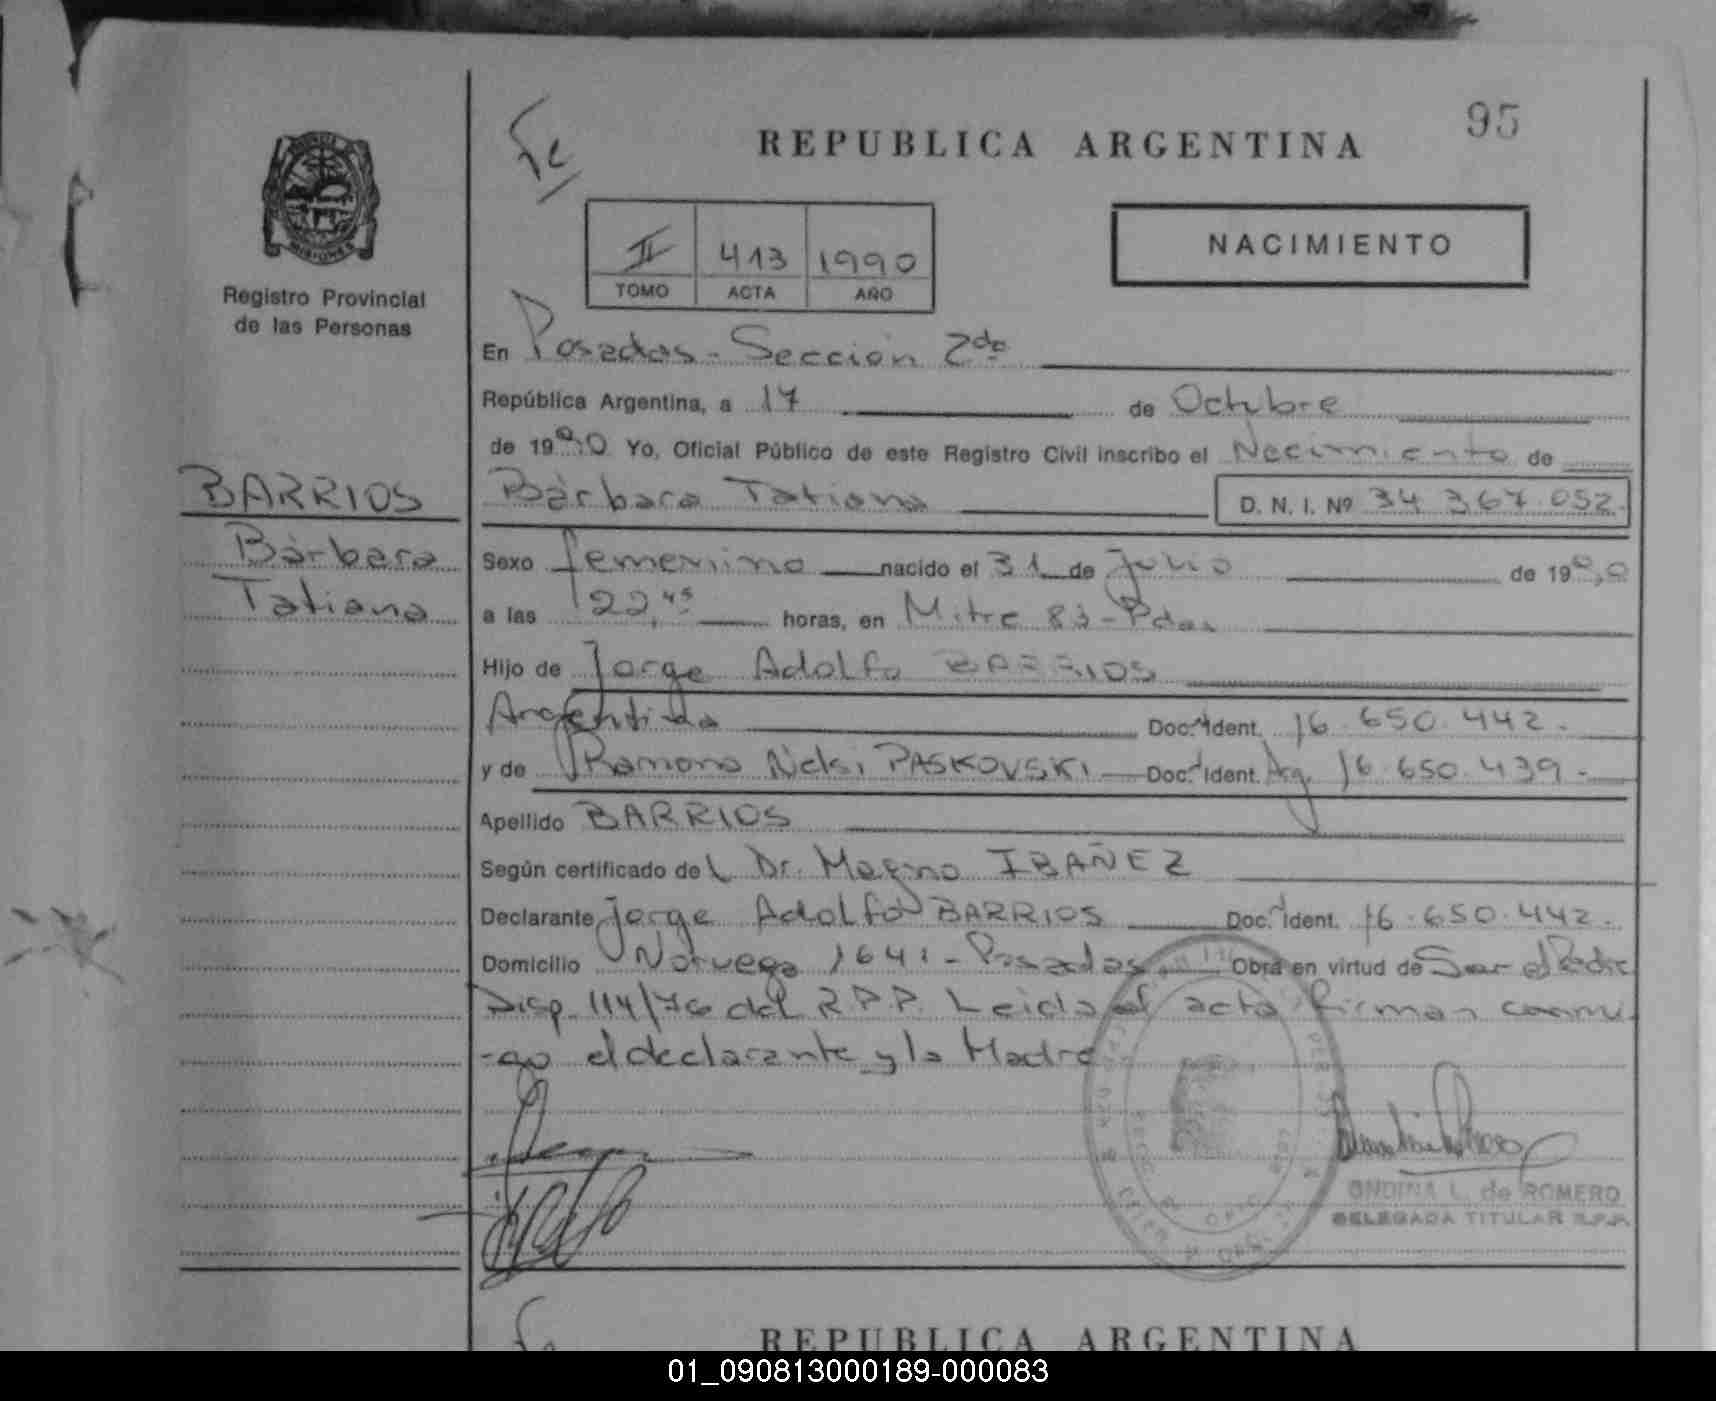 95
REPUBLICA ARGENTINA
NACIMIENTO
II 413 1990
TOMO ACTA AÑO
MISIONES
Registro Provincial
de las Personas
En Posadas - Sección 2da
República Argentina, a 17 de Octubre
de 1990 Yo, Oficial Público de este Registro Civil inscribo el Nacimiento de
BARRIOS
Bárbara Tatiana D. N. I. Nº 34.367.052.
Bárbara
Tatiana
Sexo femenino nacido el 31 de Julio de 1990
a las 22,45 horas, en Mitre 83 - Pdas
Hijo de Jorge Adolfo BARRIOS
Argentino Doc. Ident. 16.650.442.-
y de Ramona Nelsi PASKOVSKI Doc. Ident. Arg. 16.650.439.-
Apellido BARRIOS
Según certificado del Dr. Magno IBAÑEZ
Declarante Jorge Adolfo BARRIOS Doc. Ident. 16.650.442.-
Domicilio Noruega 1641 - Posadas Obra en virtud de Ser el Padre
Disp. 114/76 del R.P.P. Leida el acta firman conmi
-go el declarante y la Madre
ONDINA L. de ROMERO
DELEGADA TITULAR R.P.P.
REPUBLICA ARGENTINA
01_090813000189-000083